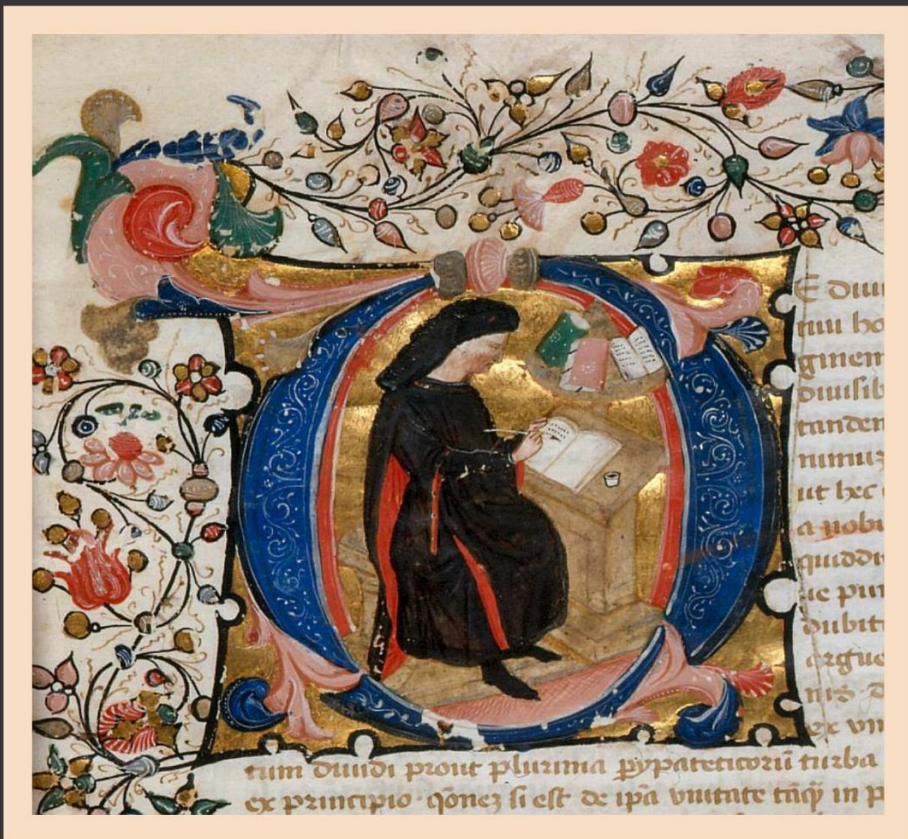 E diui
tiui ho
ginem
diuisib
tanden
nimiz
ut hec
a nobi
quiddi
ue pun
dubit
argue
niz d
ex vni
tum diuidi prout plurima pypateticorū turba
ex principio qōnez si est de ip̄a vnitate tāqȝ in p